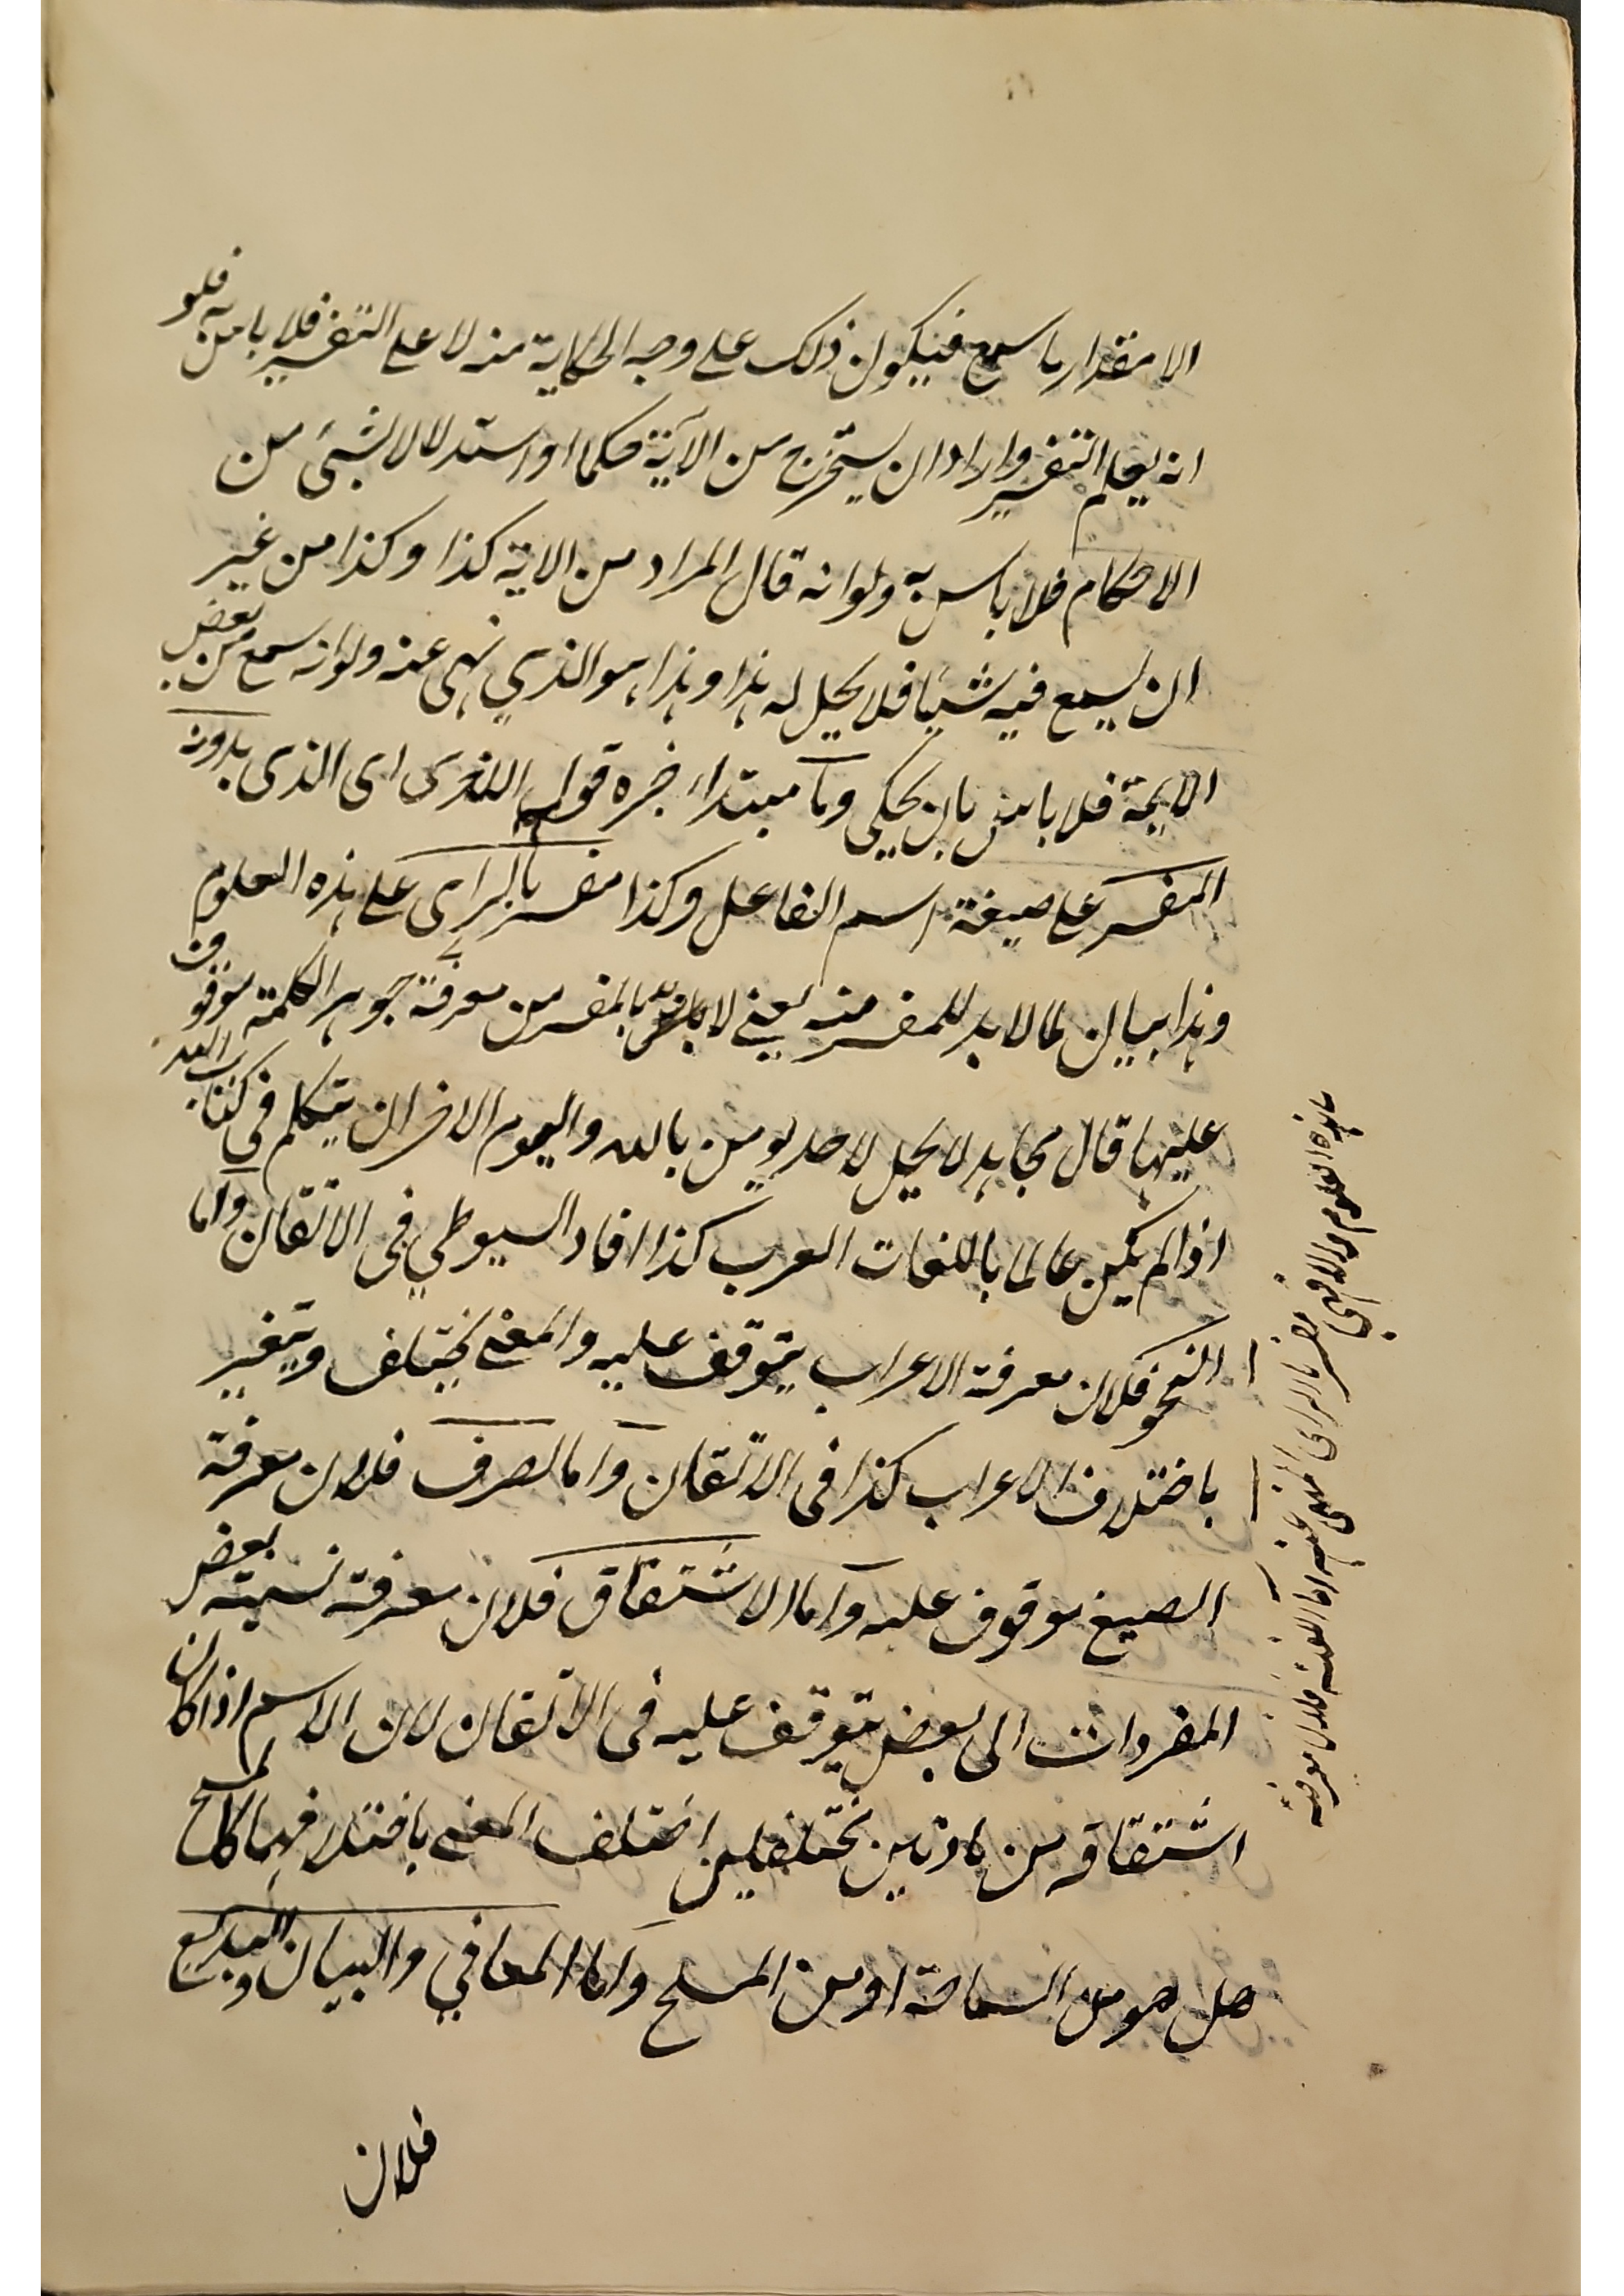 الا مقدار ما سمع فيكون ذلك على وجه الحكاية منه لا على التفسير فلا باس به فلو
انه يعلم التفسير واراد ان يستخرج من الآية حكما او استدلالا لشئ من
الاحكام فلا باس به ولو انه قال المراد من الاية كذا وكذا من غير
ان يسمع فيه شيئا فلا يحل له هذا وهذا هو الذي نهى عنه ولو انه سمع من بعض
الايمة فلا باس بان يحكي وما مبتداء خبره قوله اللغوى اى الذى بدونه
المفسر على صيغة اسم الفاعل وكذا مفسر بالراى على هذه العلوم
وهذا بيان لما لا بد للمفسر منه يعنى لا بد للمفسر من معرفة جوهر الكلمة موقوف
عليها قال مجاهد لا يحل لاحد يومن بالله واليوم الاخر ان يتكلم فى كتاب الله
اذا لم يكن عالما باللغات العرب كذا افاد السيوطي فى الاتقان واما
النحو فلان معرفة الاعراب يتوقف عليه والمعنى يختلف ويتغير
باختلاف الاعراب كذا فى الاتقان واما الصرف فلان معرفة
الصيغ موقوف عليه واما الاشتقاق فلان معرفة نسبة بعض
المفردات الى بعض يتوقف عليه فى الاتقان لان الاسم اذا كان
اشتقاقه من مادتين مختلفين اختلف المعنى باختلافهما كالمسيح
هل هو من السياحة او من المسح واما المعاني والبيان والبديع
فلان
هذه العلوم والا فهي
مفسر بالراى المنهى عنه اما اللغة فلان معرفة